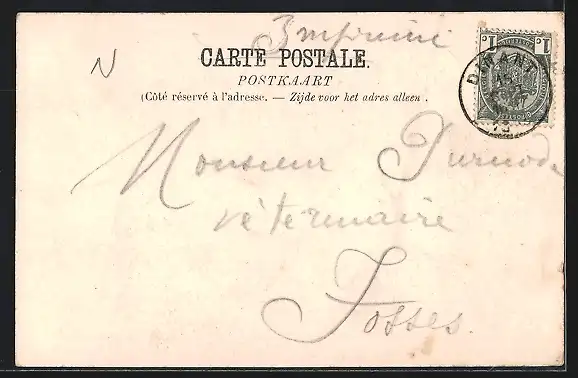 Imprimé
N
CARTE POSTALE.
POSTKAART
(Côté réservé à l'adresse. — Zijde voor het adres alleen.
1c 1c
DINANT
Monsieur Purnode
véterinaire
Fosses.